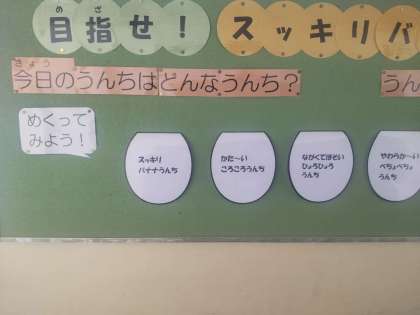 めざ
目指せ！ スッキリバ
きょう
今日のうんちはどんなうんち？ うん
めくって
みよう！
スッキリ
バナナうんち
かた〜い
ころころうんち
ながくてほそい
ひょろひょろ
うんち
やわらか〜い
べちょべちょ
うんち